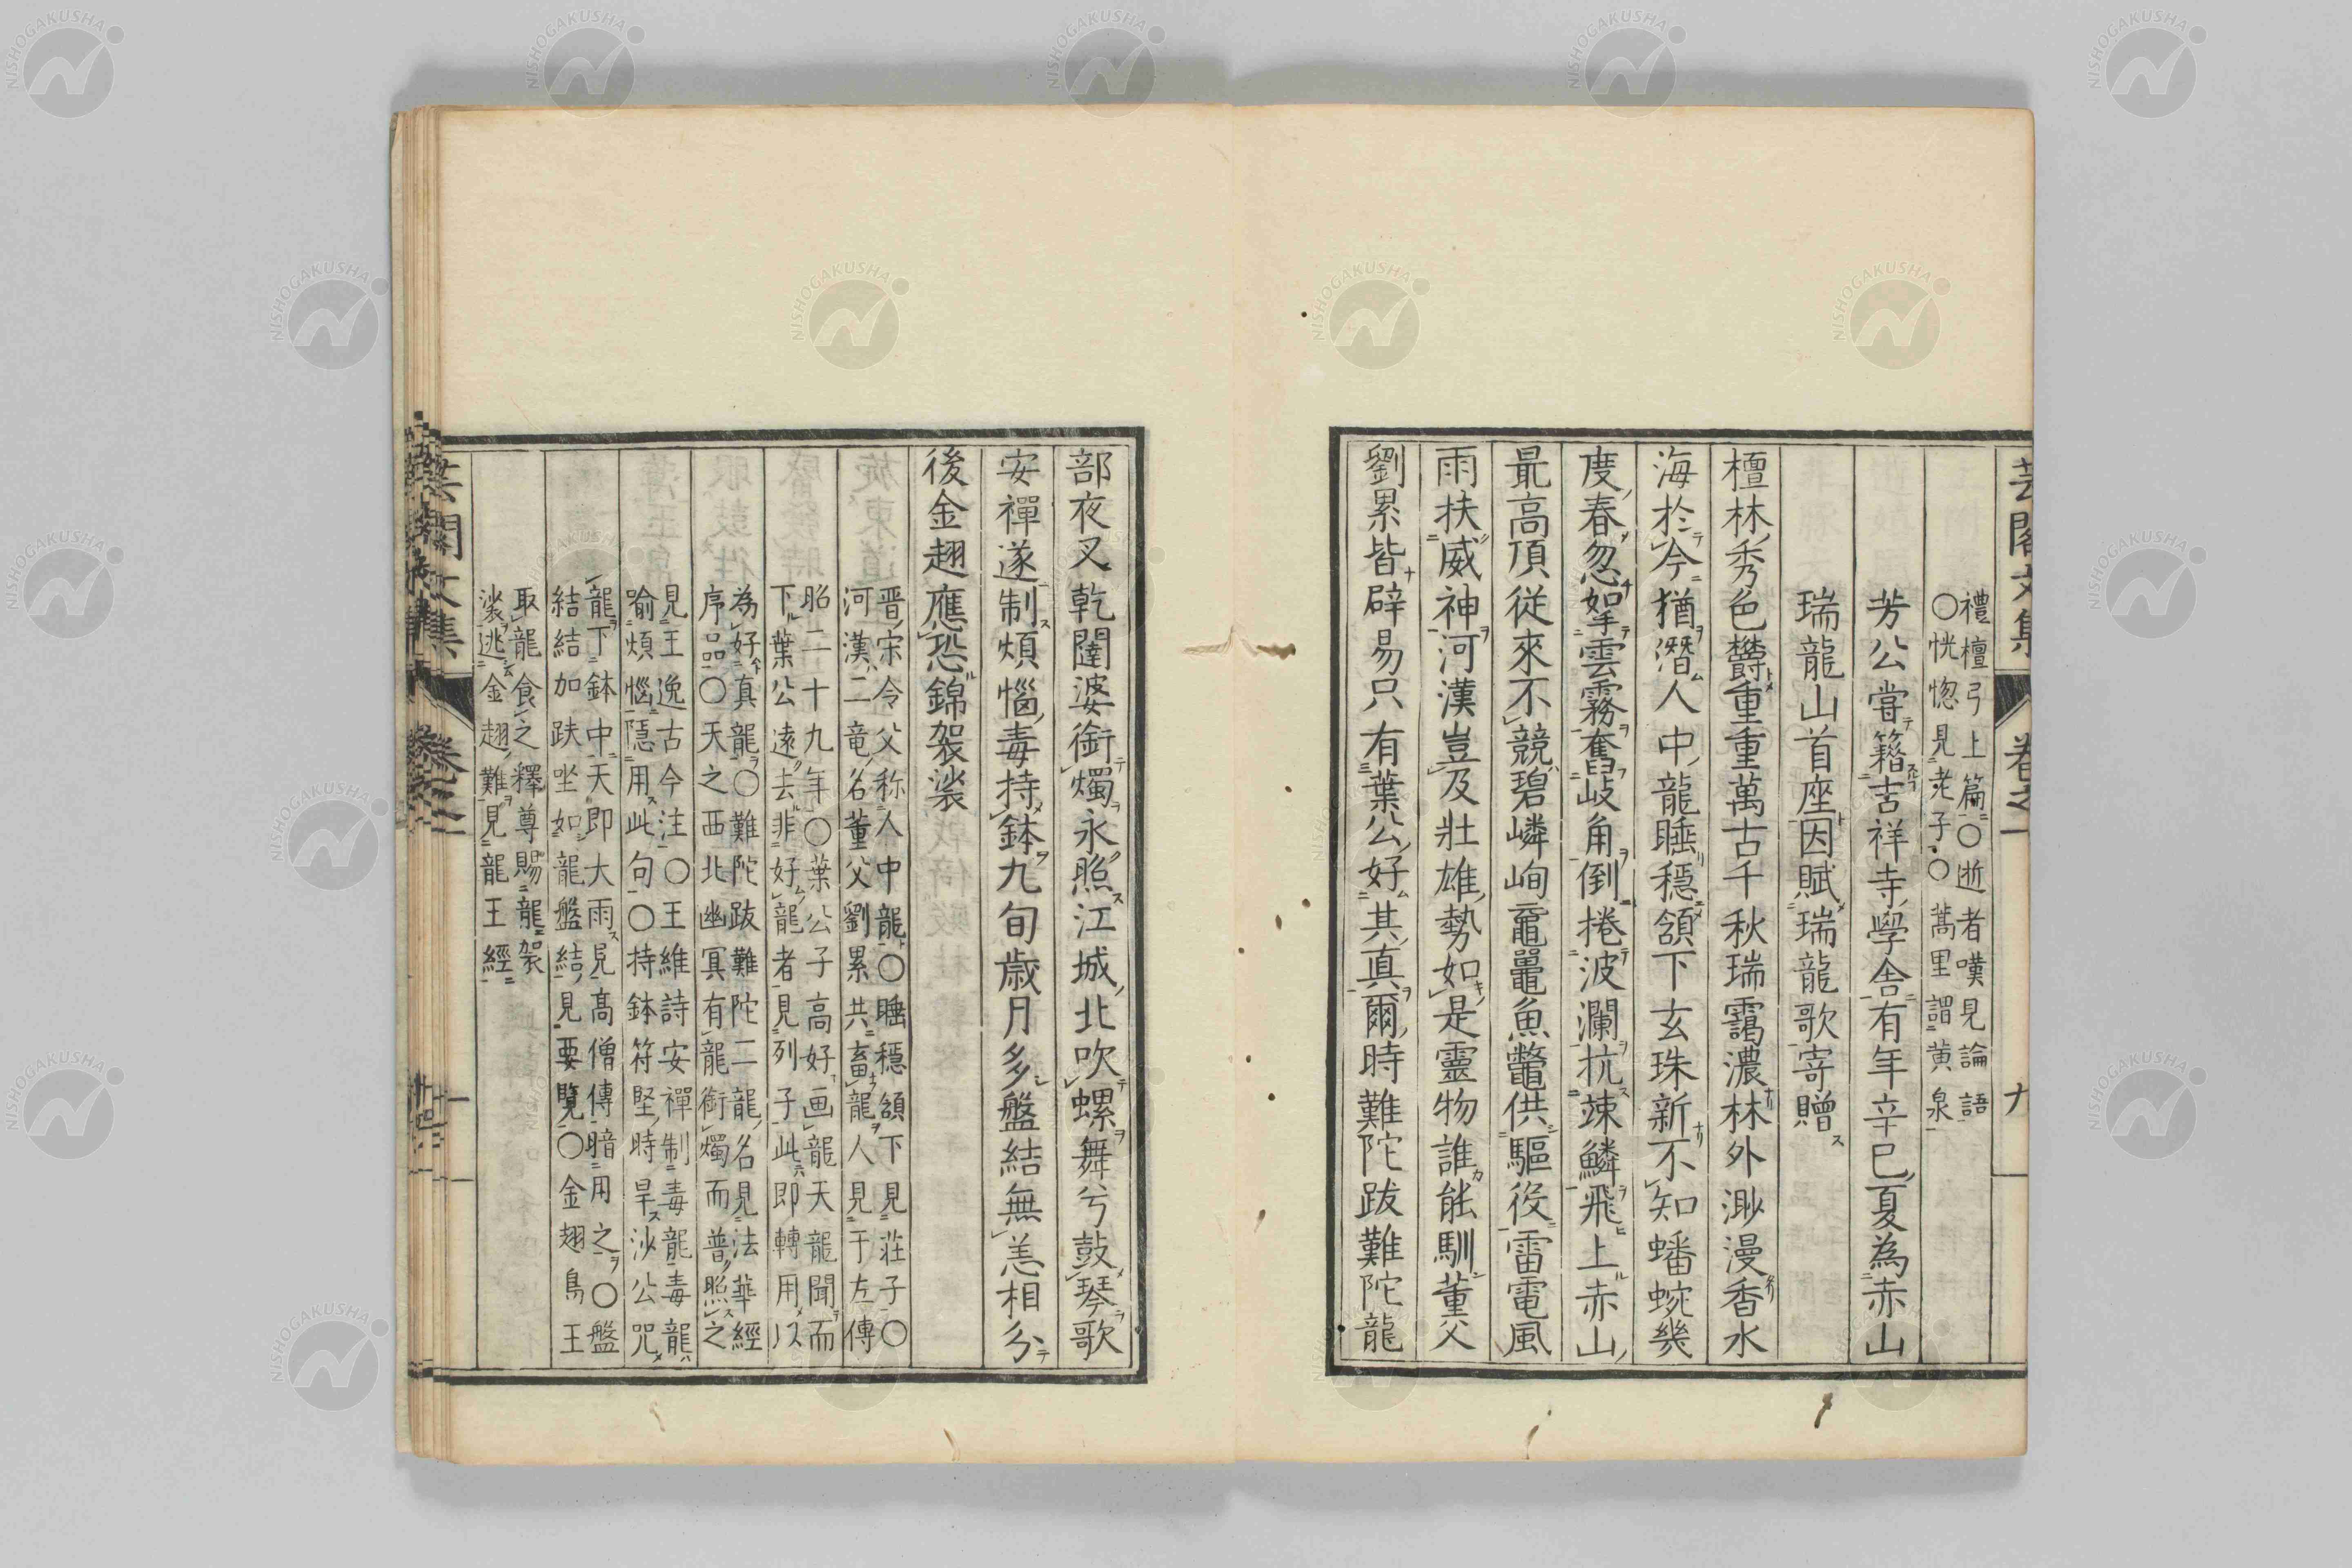 禮檀弓上篇○逝者嘆見論語
○恍惚見老子○蒿里謂黄泉
芳公嘗籍吉祥寺學舎有年辛巳夏為赤山
瑞龍山首座因賦瑞龍歌寄贈
檀林秀色欝重重萬古千秋瑞靄濃林外渺漫香水
海於今猶潛人中龍睡穩頷下玄珠新不知蟠蜿幾
度春忽如拏雲霧奮起岐角倒捲波瀾抗竦鱗飛上赤山
最高頂從來不競碧嶙峋黿鼉魚鼈供驅役雷電風
雨扶威神河漢豈及壯雄勢如是靈物誰能馴董父
劉累皆辟易只有葉公好其真爾時難陀跋難陀龍
部夜叉乾闥婆銜燭永照江城北吹螺舞兮鼓琴歌
安禪遂制煩惱毒持鉢九旬歳月多盤結無恙相分
後金翅應恐錦袈裟
晋宋令父称人中龍○睡穩頷下見荘子○
河漢二竜名董父劉累共畜龍人見于左傳
昭二十九年○葉公子高好画龍天龍聞而
下葉公遠去非好龍者見列子此即轉用以
為好真龍○難陀跋難陀二龍名見法華經
序品○天之西北幽冥有龍銜燭而普照之
見王逸古今注○王維詩安禪制毒龍毒龍
喻煩惱隱用此句○持鉢符堅時旱沙公咒
龍下鉢中天即大雨見高僧傳暗用之○盤
結結加趺坐如龍盤結見要覽○金翅鳥王
取龍食之釋尊賜龍袈
裟逃金翅難見龍王經
芸閣文集
卷之一
九